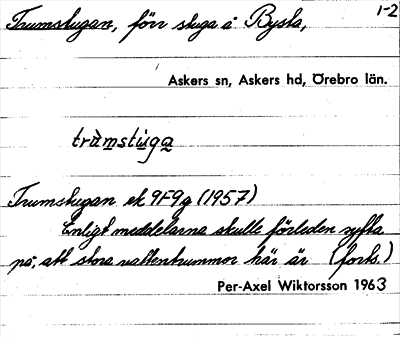 Trumstugan, förr stuga å Bysta, 1-2
Askers sn, Askers hd, Örebro län.
trùmstùga
Trumstugan ek 9F9g (1957)
Enligt meddelarna skulle förleden syfta
på, att stora vattentrummor här är (forts.)
Per-Axel Wiktorsson 1963